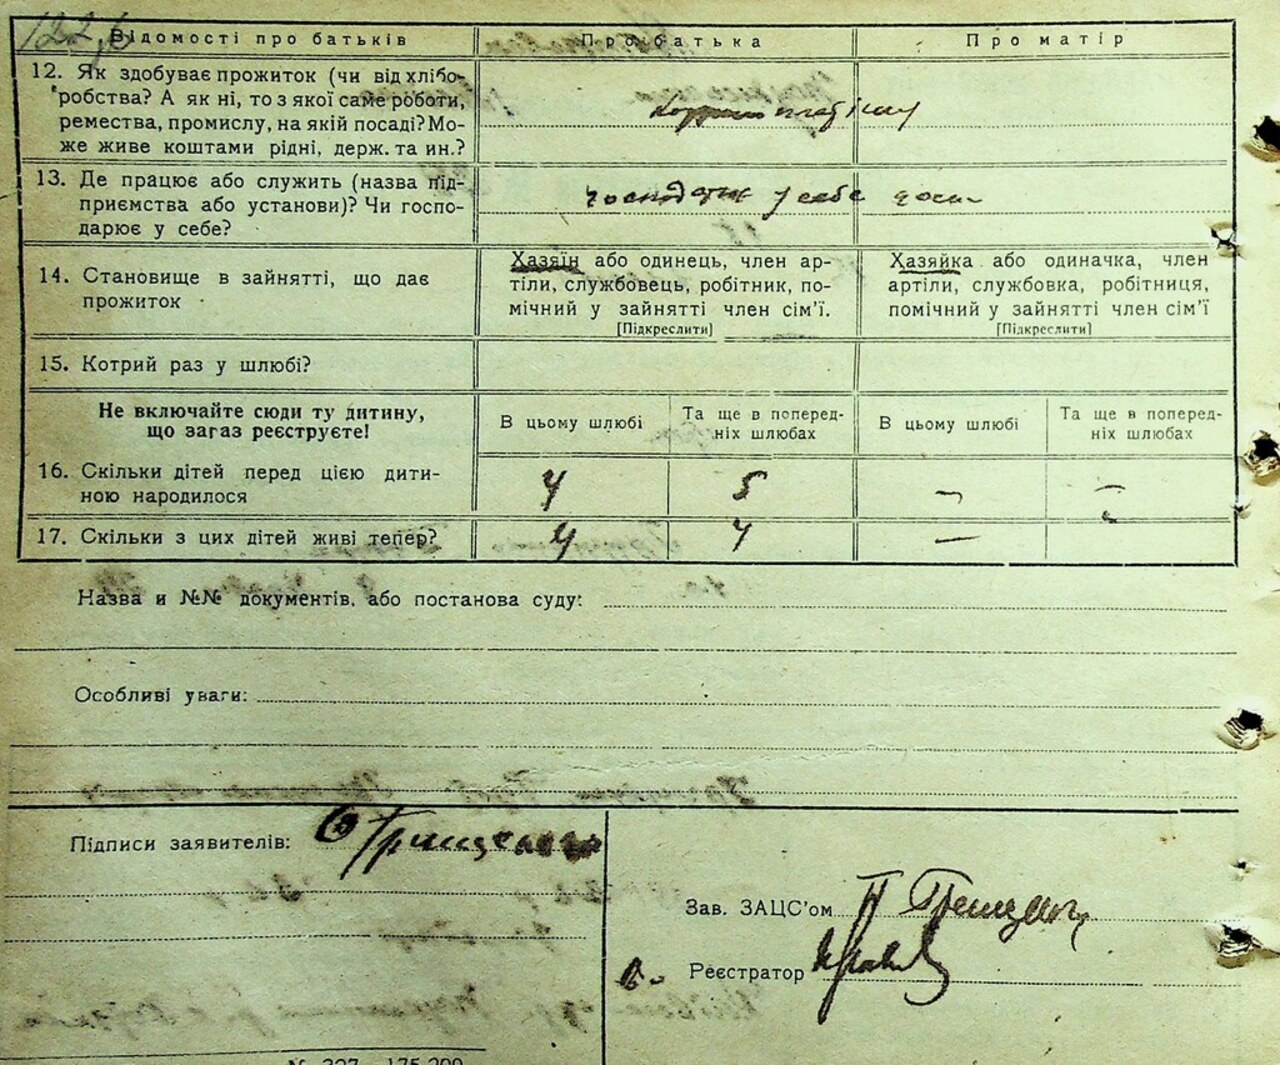 Відомості про батьків
Про батька
Про матір
12. Як здобуває прожиток (чи від хлібо-
робства? А як ні, то з якої саме роботи,
ремества, промислу, на якій посаді? Мо-
же живе коштами рідні, держ. та ин.?
13. Де працює або служить (назва під-
приємства або установи)? Чи госпо-
дарює у себе?
у себе
14. Становище в зайнятті, що дає
прожиток
Хазяїн або одинець, член ар-
тіли, службовець, робітник, по-
мічний у зайнятті член сім’ї.
[Підкреслити]
Хазяйка або одиначка, член
артіли, службовка, робітниця,
помічний у зайнятті член сім’ї
[Підкреслити]
15. Котрий раз у шлюбі?
Не включайте сюди ту дитину,
що загаз реєструєте!
В цьому шлюбі
Та ще в поперед-
ніх шлюбах
В цьому шлюбі
Та ще в поперед-
ніх шлюбах
16. Скільки дітей перед цією дити-
ною народилося
4
5
–
–
17. Скільки з цих дітей живі тепер?
4
4
–
Назва и №№ документів, або постанова суду:
Особливі уваги:
Підписи заявителів: Грищенко
Зав. ЗАЦС’ом П Грищенко
в. Реєстратор
№ 327—175.200